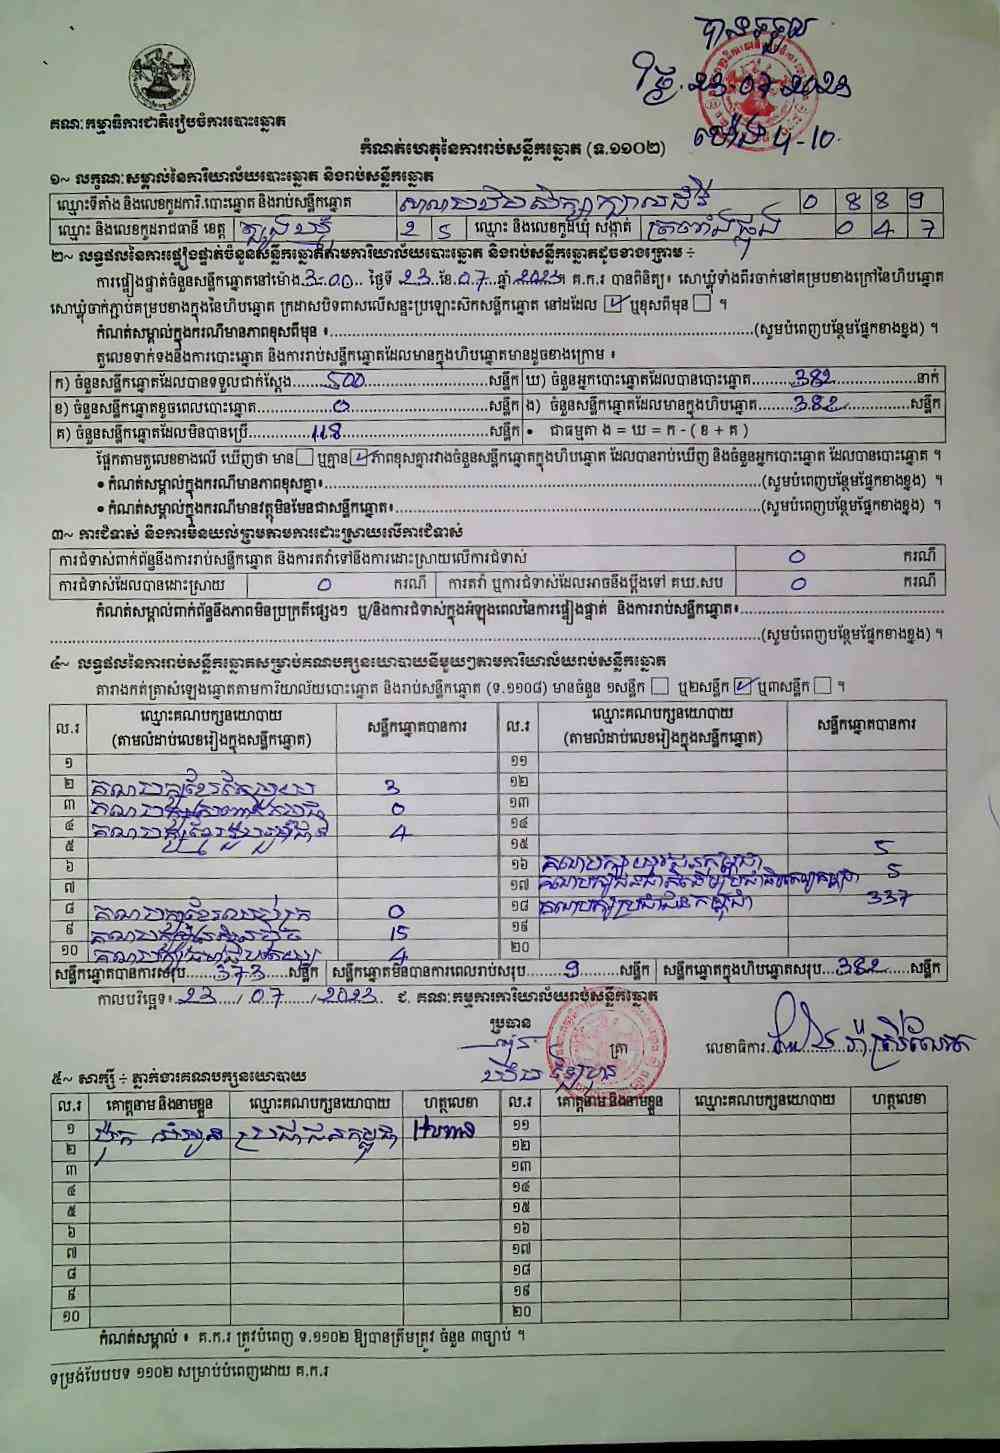 បានចម្លង
ថ្ងៃ.23.07.2023
ម៉ោង 4-10.
គណៈកម្មាធិការជាតិរៀបចំការបោះឆ្នោត
កំណត់ហេតុនៃការរាប់សន្លឹកឆ្នោត (ទ.១១០២)
១~ លក្ខណៈសម្គាល់នៃការិយាល័យបោះឆ្នោត និងរាប់សន្លឹកឆ្នោត
ឈ្មោះទីតាំង និងលេខកូដការិ.បោះឆ្នោត និងរាប់សន្លឹកឆ្នោត 0 8 8 9
ឈ្មោះ និងលេខកូដរាជធានី ខេត្ត ត្បូងឃ្មុំ 2 5 ឈ្មោះ និងលេខកូដឃុំ សង្កាត់ 0 4 7
២~ លទ្ធផលនៃការផ្ទៀងផ្ទាត់ចំនួនសន្លឹកឆ្នោតតាមការិយាល័យបោះឆ្នោត និងរាប់សន្លឹកឆ្នោតដូចខាងក្រោម ÷
ការផ្ទៀងផ្ទាត់ចំនួនសន្លឹកឆ្នោតនៅម៉ោង 3:00 ថ្ងៃទី 23 ខែ 07 ឆ្នាំ 2023 គ.ក.រ បានពិនិត្យ៖ សោឃ្មុំទាំងពីរចាក់នៅគម្របខាងក្រៅនៃហិបឆ្នោត
សោឃ្មុំចាក់ភ្ជាប់គម្របខាងក្នុងនៃហិបឆ្នោត ក្រដាសបិទពាសលើសន្ទះប្រឡោះស៊កសន្លឹកឆ្នោត នៅដដែល ☑ ឬខុសពីមុន ☐ ។
កំណត់សម្គាល់ក្នុងករណីមានភាពខុសពីមុន ៖ (សូមបំពេញបន្ថែមផ្នែកខាងខ្នង) ។
តួលេខទាក់ទងនឹងការបោះឆ្នោត និងការរាប់សន្លឹកឆ្នោតដែលមានក្នុងហិបឆ្នោតមានដូចខាងក្រោម ៖
ក) ចំនួនសន្លឹកឆ្នោតដែលបានទទួលជាក់ស្តែង 500 សន្លឹក ឃ) ចំនួនអ្នកបោះឆ្នោតដែលបានបោះឆ្នោត 382 នាក់
ខ) ចំនួនសន្លឹកឆ្នោតខូចពេលបោះឆ្នោត 0 សន្លឹក ង) ចំនួនសន្លឹកឆ្នោតដែលមានក្នុងហិបឆ្នោត 382 សន្លឹក
គ) ចំនួនសន្លឹកឆ្នោតដែលមិនបានប្រើ 118 សន្លឹក • ជាធម្មតា ង = ឃ = ក - ( ខ + គ )
ផ្អែកតាមតួលេខខាងលើ ឃើញថា មាន ☐ ឬគ្មាន ☑ ភាពខុសគ្នារវាងចំនួនសន្លឹកឆ្នោតក្នុងហិបឆ្នោត ដែលបានរាប់ឃើញ និងចំនួនអ្នកបោះឆ្នោត ដែលបានបោះឆ្នោត ។
• កំណត់សម្គាល់ក្នុងករណីមានភាពខុសគ្នា៖ (សូមបំពេញបន្ថែមផ្នែកខាងខ្នង) ។
• កំណត់សម្គាល់ក្នុងករណីមានវត្ថុមិនមែនជាសន្លឹកឆ្នោត៖ (សូមបំពេញបន្ថែមផ្នែកខាងខ្នង) ។
៣~ ការជំទាស់ និងការមិនយល់ព្រមតាមការដោះស្រាយលើការជំទាស់
ការជំទាស់ពាក់ព័ន្ធនឹងការរាប់សន្លឹកឆ្នោត និងការតវ៉ាទៅនឹងការដោះស្រាយលើការជំទាស់ 0 ករណី
ការជំទាស់ដែលបានដោះស្រាយ 0 ករណី ការតវ៉ា ឬការជំទាស់ដែលអាចនឹងប្តឹងទៅ គឃ.សប 0 ករណី
កំណត់សម្គាល់ពាក់ព័ន្ធនឹងភាពមិនប្រក្រតីផ្សេងៗ ឬ/និងការជំទាស់ក្នុងអំឡុងពេលនៃការផ្ទៀងផ្ទាត់ និងការរាប់សន្លឹកឆ្នោត៖
(សូមបំពេញបន្ថែមផ្នែកខាងខ្នង) ។
៤~ លទ្ធផលនៃការរាប់សន្លឹកឆ្នោតសម្រាប់គណបក្សនយោបាយនីមួយៗតាមការិយាល័យរាប់សន្លឹកឆ្នោត
តារាងកត់ត្រាសំឡេងឆ្នោតតាមការិយាល័យបោះឆ្នោត និងរាប់សន្លឹកឆ្នោត (ទ.១១០៨) មានចំនួន ១សន្លឹក ☐ ឬ២សន្លឹក ☑ ឬ៣សន្លឹក ☐ ។
ល.រ ឈ្មោះគណបក្សនយោបាយ (តាមលំដាប់លេខរៀងក្នុងសន្លឹកឆ្នោត) សន្លឹកឆ្នោតបានការ ល.រ ឈ្មោះគណបក្សនយោបាយ (តាមលំដាប់លេខរៀងក្នុងសន្លឹកឆ្នោត) សន្លឹកឆ្នោតបានការ
១ ១១
២ 3 ១២
៣ 0 ១៣
៤ 4 ១៤
៥ ១៥
៦ ១៦ គណបក្សយុវជនកម្ពុជា 5
៧ ១៧ 5
៨ 0 ១៨ គណបក្សប្រជាជនកម្ពុជា 337
៩ 15 ១៩
១០ 4 ២០
សន្លឹកឆ្នោតបានការសរុប 373 សន្លឹក សន្លឹកឆ្នោតមិនបានការពេលរាប់សរុប 9 សន្លឹក សន្លឹកឆ្នោតក្នុងហិបឆ្នោតសរុប 382 សន្លឹក
កាលបរិច្ឆេទ៖ 23 / 07 / 2023 ជ. គណៈកម្មការការិយាល័យរាប់សន្លឹកឆ្នោត
ប្រធាន ត្រា លេខាធិការ
៥~ សាក្សី ÷ ភ្នាក់ងារគណបក្សនយោបាយ
ល.រ គោត្តនាម និងនាមខ្លួន ឈ្មោះគណបក្សនយោបាយ ហត្ថលេខា ល.រ គោត្តនាម និងនាមខ្លួន ឈ្មោះគណបក្សនយោបាយ ហត្ថលេខា
១ ប្រជាជនកម្ពុជា ១១
២ ១២
៣ ១៣
៤ ១៤
៥ ១៥
៦ ១៦
៧ ១៧
៨ ១៨
៩ ១៩
១០ ២០
កំណត់សម្គាល់ ៖ គ.ក.រ ត្រូវបំពេញ ទ.១១០២ ឱ្យបានត្រឹមត្រូវ ចំនួន ៣ច្បាប់ ។
ទម្រង់បែបបទ ១១០២ សម្រាប់បំពេញដោយ គ.ក.រ